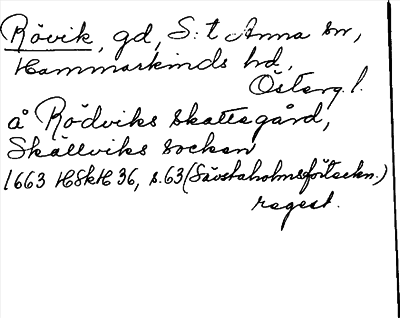 Rövik, gd, S:t Anna sn,
Hammarkinds hd,
Österg. l.
å Rödviks skattegård,
Skällviks socken
1663 HSkH 36, s. 63 (Sävstaholmsförteckn.)
regest.